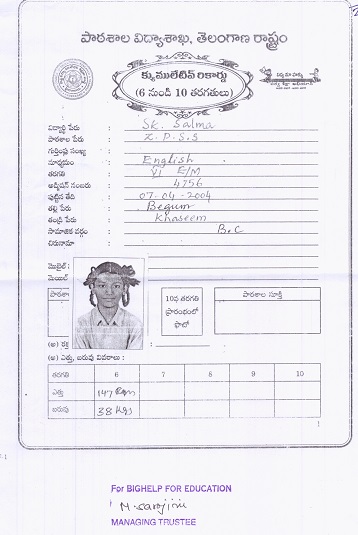 పాఠశాల విద్యాశాఖ, తెలంగాణ రాష్ట్రం
క్యుములేటివ్ రికార్డు
(6 నుండి 10 తరగతులు)
విద్యార్థి పేరు : Sk. Salma
పాఠశాల పేరు : Z.P.S.S
గుర్తింపు సంఖ్య :
మాధ్యమం : English
తరగతి : VI E/M
అడ్మిషన్ నంబరు : 4756
పుట్టిన తేది : 07-04-2004
తల్లి పేరు : Begum
తండ్రి పేరు : Khaseem
సామాజిక వర్గం : B.C
చిరునామా :
మొబైల్ :
10వ తరగతి
ప్రారంభంలో
ఫొటో
పాఠశాల సూక్తి
(అ) ఎత్తు, బరువు వివరాలు :
తరగతి 6 7 8 9 10
ఎత్తు 147 cm
బరువు 38 kgs
1
For BIGHELP FOR EDUCATION
M. Sarojini
MANAGING TRUSTEE